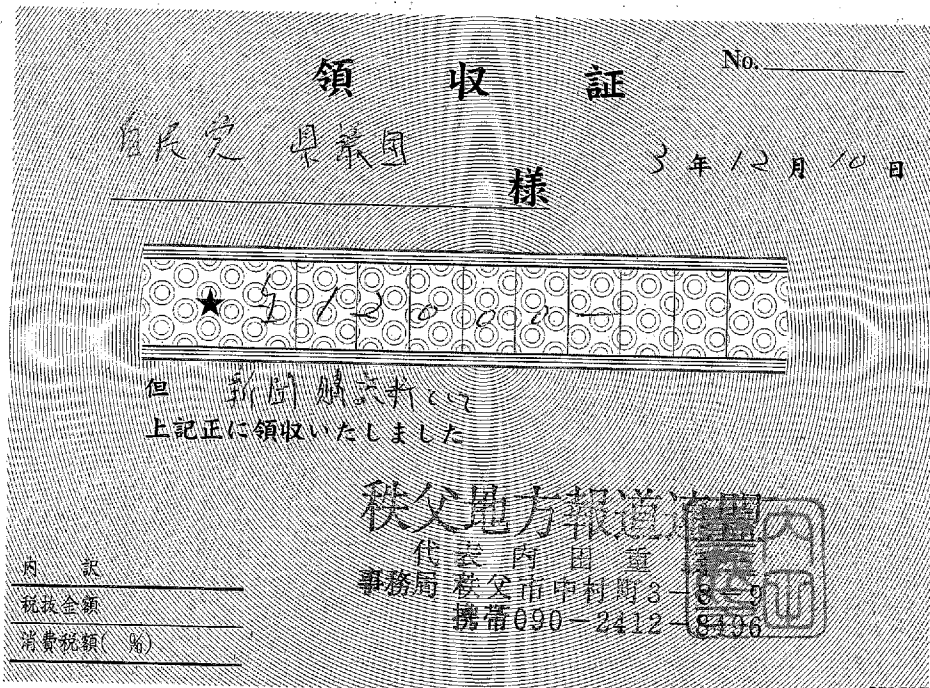 領収証 No.
自民党 県議団 様
3年12月10日
★ ¥12000-
但 新聞購読料として
上記正に領収いたしました
秩父地方報道連盟
代表 内田重
事務局 秩父市中村町3-8-9
携帯090-2412-8496
内訳
税抜金額
消費税額( %)